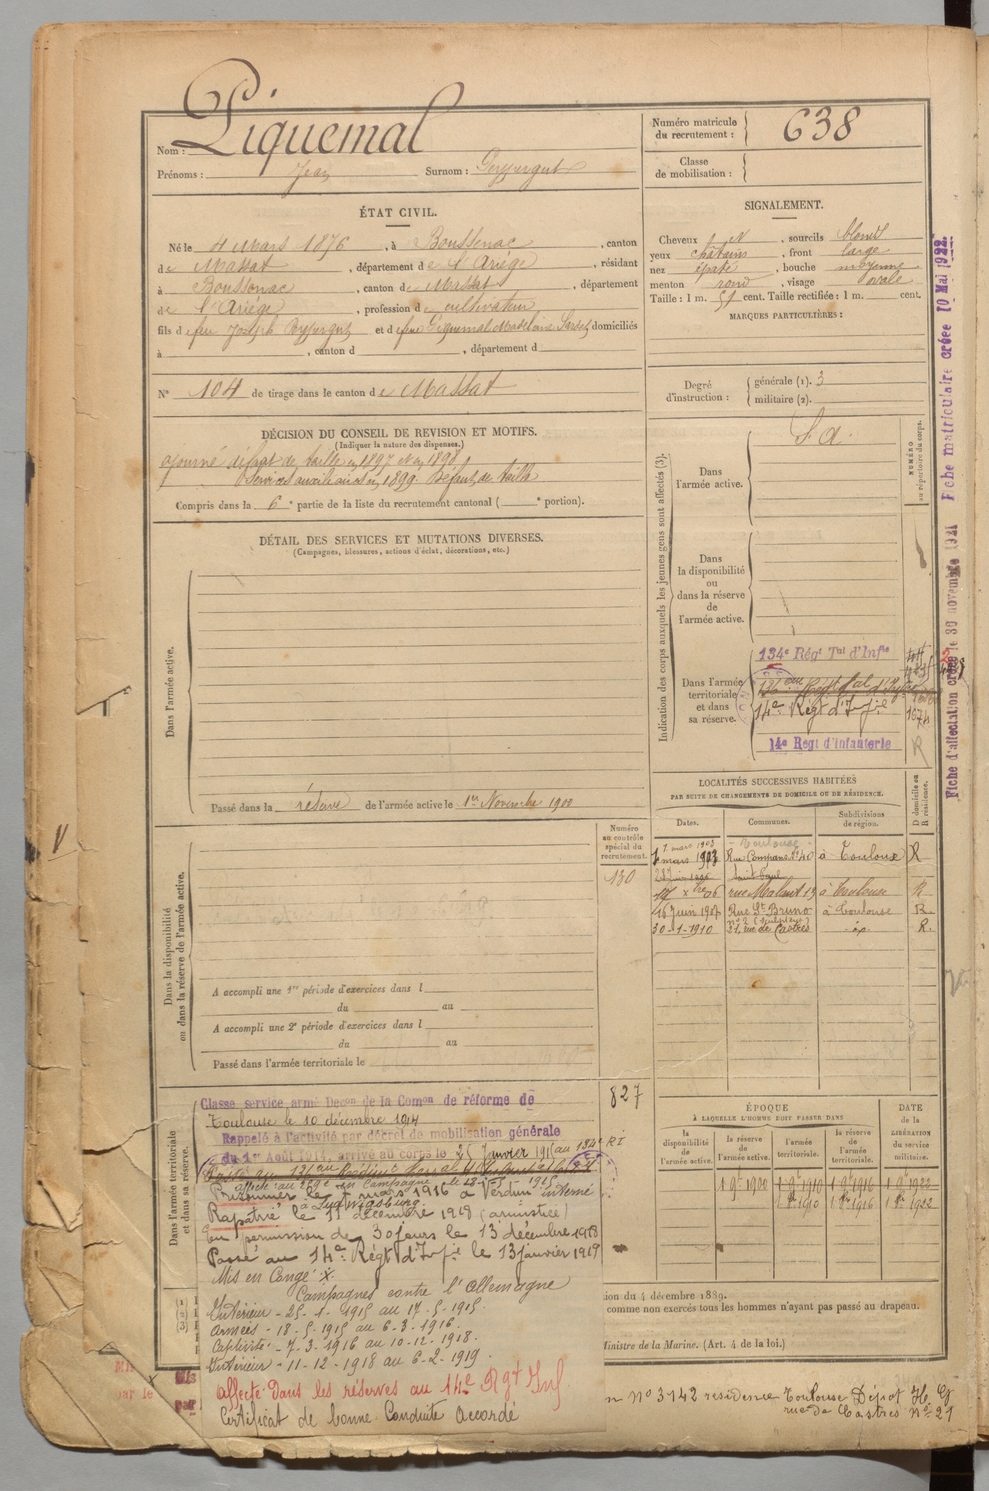 Nom : Piquemal
Prénoms : Jean Surnom : Peyregut
Numéro matricule du recrutement : 638
Classe de mobilisation :
ÉTAT CIVIL.
Né le 4 Mars 1876, à Boussenac, canton
de Massat, département de l'Ariége, résidant
à Boussenac, canton de Massat, département
de l'Ariége, profession de cultivateur
fils de feu Joseph Peyregut et de feue Piquemal Madelaine domiciliés
à , canton d , département d
N° 104 de tirage dans le canton de Massat
SIGNALEMENT.
Cheveux et , sourcils blonds
yeux châtains, front large
nez épaté, bouche moyenne
menton rond, visage ovale
Taille : 1 m. 51 cent. Taille rectifiée : 1 m. cent.
MARQUES PARTICULIÈRES :
Degré d'instruction : générale (1). 3
militaire (2).
DÉCISION DU CONSEIL DE REVISION ET MOTIFS.
(Indiquer la nature des dispenses.)
ajourné défaut de taille en 1897 et en 1898,
Services auxiliaires en 1899. Défaut de taille
Compris dans la 6e partie de la liste du recrutement cantonal ( e portion).
DÉTAIL DES SERVICES ET MUTATIONS DIVERSES.
(Campagnes, blessures, actions d'éclat, décorations, etc.)
Dans l'armée active.
Passé dans la réserve de l'armée active le 1er Novembre 1900
Indication des corps auxquels les jeunes gens sont affectés (3).
NUMÉRO au répertoire du corps.
Dans l'armée active.
S. a.
Dans la disponibilité ou dans la réserve de l'armée active.
Dans l'armée territoriale et dans sa réserve.
134e Régt Tal d'Infie
14e Régt d'Infie
14e Régt d'Infanterie
R
Fiche d'affectation créée le 30 novembre 1921
Fiche matriculaire créée 10 Mai 1922.
LOCALITÉS SUCCESSIVES HABITÉES
PAR SUITE DE CHANGEMENTS DE DOMICILE OU DE RÉSIDENCE.
Dates. Communes. Subdivisions de région. D domicile ou R résidence.
7 mars 1903 Toulouse
7 mars 1903 Rue Compans N° 40 à Toulouse R
Saint Paul
17 Xbre 06 rue Malaut 19 à Toulouse R
16 Juin 1907 Rue St Bruno à Toulouse R.
30-1-1910 21, rue de Castres do R.
Numéro au contrôle spécial du recrutement.
130
Dans la disponibilité ou dans la réserve de l'armée active.
A accompli une 1re période d'exercices dans l
du au
A accompli une 2e période d'exercices dans l
du au
Passé dans l'armée territoriale le
827
Dans l'armée territoriale et dans sa réserve.
Classe service armé Decon de la Comon de réforme de
Toulouse le 10 décembre 1914
Rappelé à l'activité par décret de mobilisation générale
du 1er Août 1914, arrivé au corps le 25 Janvier 1915 au 134e RI
Prisonnier le 7 mars 1916 à Verdun interné
à Ludwigsburg
Rapatrié le 11 décembre 1918 (armistice)
En permission de 30 jours le 13 décembre 1918
Passé au 14e Régt d'Infie le 13 janvier 1919
Mis en Congé
Campagnes contre l'Allemagne
Intérieur - 25-1-1915 au 17-5-1915
Armées - 18-5-1915 au 6-3-1916.
Captivité - 7-3-1916 au 10-12-1918.
Intérieur - 11-12-1918 au 6-2-1919.
affecté dans les réserves au 14e Rgt Inf.
Certificat de bonne Conduite Accordé
ÉPOQUE
À LAQUELLE L'HOMME DOIT PASSER DANS
la disponibilité de l'armée active. la réserve de l'armée active. l'armée territoriale. la réserve de l'armée territoriale.
DATE de la LIBÉRATION du service militaire.
1 9bre 1900 1 9bre 1910 1 9bre 1916 1 9bre 1922
1 8bre 1910 1 8bre 1916 1 8bre 1922
ion du 4 décembre 1889.
comme non exercés tous les hommes n'ayant pas passé au drapeau.
Ministre de la Marine. (Art. 4 de la loi.)
n N° 3142 résidence Toulouse Dépot
rue de Castres N° 21